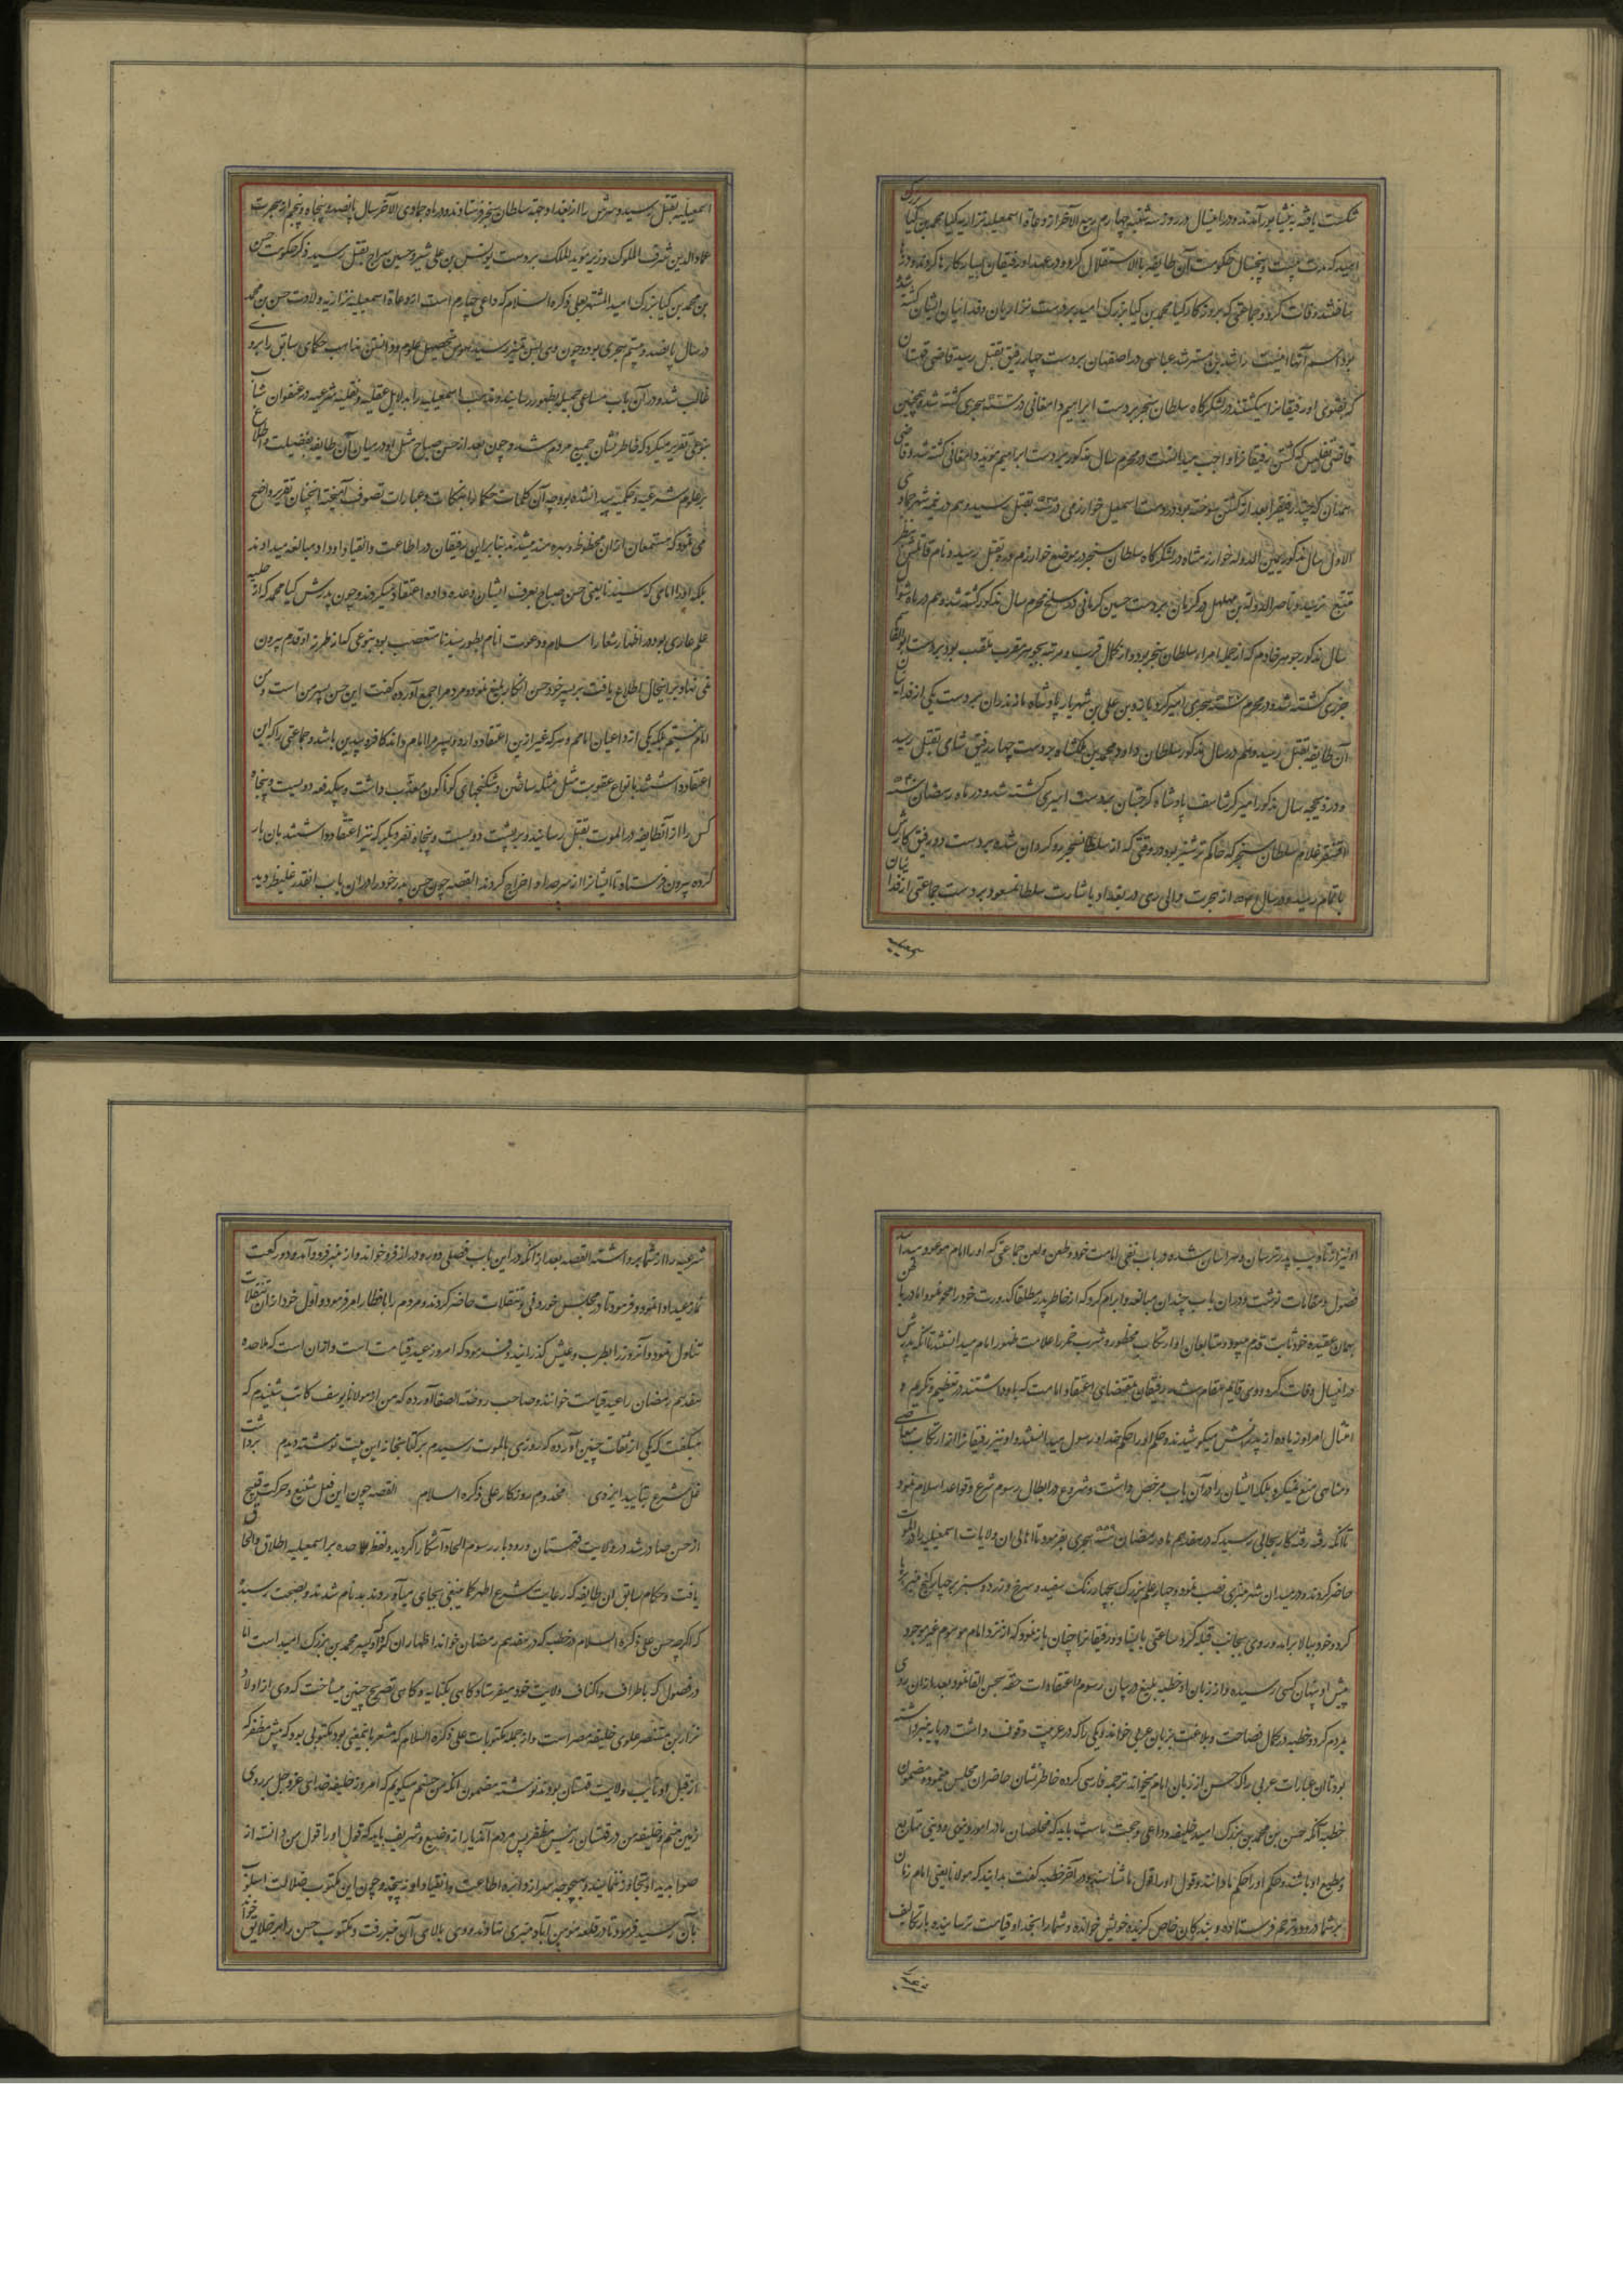 شکست یافته به نیشابور آمدند و در این سال در روز سه شنبه چهارم ربیع الآخر از دعاة اسمعیلیه نزاریه کیا محمد بن کیا بزرک
امید که مدت بیست و پنج سال حکومت آن طایفه بالاستقلال کرد و در عهد او رفیقان بسیار کارها کردند
وفات کرد و جماعتی که بروزکار کیا محمد بن کیا بزرک امید بر دست نزاریان و فدائیان ایشان کشته شد
راشد بن مسترشد عباسی در اصفهان بر دست چهار رفیق بقتل رسید قاضی قهستان
که بفتوی او رفیقانرا میکشتند در لشکرکاه سلطان سنجر بر دست ابراهیم دامغانی در سنه هجری کشته شد و همچنین
قاضی تفلیس که کشتن رفیقانرا واجب میدانست در محرم سال مذکور بر دست ابراهیم دامغانی کشته شد و قاضی
همدان که چند رفیق را بعد از کشتن سوخته بود بر دست اسمعیل خوارزمی در سنه بقتل رسید و هم در غره شهر جمادی
الاول سال مذکور یمین الدوله خوارزمشاه در لشکرکاه سلطان سنجر در موضع خوارزم بقتل رسید و نام قاتلین
ناصر الدوله بن مهلهل در کرمان بر دست حسین کرمانی در سلخ محرم سال مذکور کشته شد و هم در ماه شوال
سال مذکور جوهر خادم که از جمله امراء سلطان سنجر بود و از کمال قرب و مرتبه بجوهر مقرب ملقب بود بر دست
کشته شد و در محرم سنه هجری امیر کرد بازو بن علی بن شهریار پادشاه مازندران بر دست یکی از فدائیان
آن طایفه بقتل رسید و هم در سال مذکور سلطان داود بن محمد بن ملکشاه بر دست چهار رفیق شامی بقتل رسید
و در ذیحجه سال مذکور امیر کرشاسف پادشاه کرجیان بر دست امیری کشته شد و در ماه رمضان سنه ۵۳۰
اقسنقر غلام سلطان سنجر که حاکم ترشیز بود در وقتی که از سلطان سنجر روکردان شده بر دست دو رفیق کارش
باتمام رسید و در سال از هجرت والی ری در بغداد باشارت سلطان مسعود بر دست جماعتی از فدائیان
اسمعیلیه بقتل رسید و سرش را از بغداد بجهة سلطان سنجر فرستادند و در ماه جمادی الآخر سال پانصد و پنجاه و پنجم از هجرت
عماد الدین شرف الملوک وزیر موید الملک بر دست یونس بن علی شیر و حسین سراج بقتل رسید ذکر حکومت حسن
بن محمد بن کیا بزرک امید المشتهر بعلی ذکره السلام که داعی چهارم است از دعاة اسمعیلیه نزاریه ولادت حسن بن محمد
در سال پانصد و بیستم هجری بود و چون وی بسن تمیز رسید هوس تحصیل علوم و دانستن مذاهب حکمای سابق برو
غالب شد و در آن باب مساعی جمیله بظهور رسانید و مذهب اسمعیلیه را بدلایل عقلیه و نقلیه شرعیه در عنفوان شباب
بنوعی تقریر میکرد که خاطرنشان جمیع مردم شد و چون بعد از حسن صباح مثل او در میان آن طایفه بفضیلت و اطلاع
بر علوم شرعیه و حکمیه پیدا نشده بود چه آن کلمات حکما را بنکات و عبارات تصوف آمیخته آنچنان تقریر واضح
می نمود که مستمعان از آن محظوظ و بهره مند میشدند بنابراین رفیقان در اطاعت و انقیاد او داد مبالغه میدادند
بلکه او را امامی که سیدنا یعنی حسن صباح بعرف ایشان وعده داده اعتقاد میکردند و چون پدرش کیا محمد که از حلیه
علم عاری بود و در اظهار شعار اسلام و دعوت انام بطور سیدنا متعصب بود بنوعی که از طرز او قدم بیرون
نمی نهاد بر این حال اطلاع یافت بر پسر خود حسن انکار بلیغ نمود و مردم را جمع آورده کفت این حسن پسر من است و من
امام نیستم بلکه یکی از داعیان امامم و هر که غیر ازین اعتقاد دارد و پسر مرا امام داند کافر و بیدین باشد و جماعتی را که این
اعتقاد داشتند بانواع عقوبت مثل مثله ساختن و شکنجهای کوناکون معذب داشت و بیکدفعه دویست و پنجاه
کس را از آنطایفه در الموت بقتل رسانید و بر پشت دویست و پنجاه نفر دیکر که نیز اعتقاد داشتند بان بار
کرده بیرون فرستاد تا ایشانرا از سرحد او اخراج کردند القصه چون حسن پدر خود را در آن باب آنقدر غلیظ دید
او نیز از تادیب پدر ترسان و هراسان شده در باب نفی امامت خود و طعن و لعن جماعتی که او را امام موعود میدانستند
فصول و مقالات نوشت و در آن باب چندان مبالغه و ابرام کرد که از خاطر پدر مطلقا کدورت خود را محو نمود اما در باطن
بهمان عقیده خود ثابت قدم میبود و متابعان او ارتکاب محظوره و شرب خمر را علامت ظهور امام میدانستند تا آنکه پدرش
در این سال وفات کرد و وی قایم مقام شد رفیقان بمقتضای اعتقاد امامت که باو داشتند در تعظیم و تکریم و
امتثال امر او زیاده از پدرش میکوشیدند و حکم او را حکم خدا و رسول میدانستند و او نیز رفیقانرا از ارتکاب معاصی
و مناهی منع نمیکرد بلکه ایشان را در آن باب مرخص داشت و شروع در ابطال رسوم شرع و قواعد اسلام نمود
تا آنکه رفته رفته کار بجائی رسید که در هفدهم ماه رمضان سنه هجری بفرمود تا اهالی آن ولایات اسمعیلیه را در الموت
حاضر کردند و در میدان شهر منبری نصب نمود و چهار علم بزرک بچهار رنک سفید و سرخ و زرد و سبز بر چهار کنج منبر برپا
کرد و خود ببالا برآمد و روی بجانب قبله کرد و ساعتی بایستاد و رفیقانرا چنان باز نمود که از نزد امام موهوم غیر موجود
پیش او پنهان کسی رسیده و از زبان او خطبه بلیغ در بیان رسوم اعتقادات حقه بحسن القا نمود و بعد ازان روی
بمردم کرد و خطبه در کمال فصاحت و بلاغت بزبان عربی خواند و یکی را که در عربیت وقوف داشت در پایه منبر داشته
بود تا آن عبارات عربی را که حسن از زبان امام میخواند ترجمه فارسی کرده خاطرنشان حاضران مجلس مینمود مضمون
خطبه آنکه حسن بن محمد بن بزرک امید خلیفه و داعی و حجت ماست باید که مخلصان ما در امور دینی و دنیوی متابع
و مطیع او باشند و حکم او را حکم ما دانند و قول او را قول ما شناسند و در آخر خطبه کفت بدانید که مولانا یعنی امام زمان
بر شما درود و ترحم فرستاده و بندکان خاص کزیده خویش خوانده و شما را بخدا و قیامت ترسانیده بار تکالیف
شرعیه را از شما برداشته القصه بعد از آنکه در این باب فصلی دور و دراز فرو خواند و از منبر فرود آمده دو رکعت
نماز عید ادا نمود و فرمود تا در مجلس خوردنی و تنقلات حاضر کردند و مردم را بافطار امر فرمود و اول خود از آن تنقلات
تناول نمود و آنروز را بطرب و عیش کذرانید و فرمود که امروز عید قیامت است و ازان است که ملاحده
هفدهم رمضان را عید قیامت خوانند و صاحب روضة الصفا آورده که من از مولانا یوسف کاتب شنیدم که
میکفت که یکی از ثقات چنین آورده که روزی بالموت رسیدم بر کتابخانه این بیت نوشته دیدم برداشت
غل شرع بتایید ایزدی مخدوم روزکار علی ذکره السلام القصه چون این فعل شنیع و حرکت قبیح
از حسن صادر شد در ولایت قهستان و رودبار رسوم الحاد آشکارا کردید و لفظ ملاحده بر اسمعیلیه اطلاق و الحاق
یافت و حکام سابق آن طایفه که رعایت شرع اطهر کما ینبغی بجای میآوردند بدنام شدند و بصحت رسیده
که اکرچه حسن علی ذکره السلام در خطبه که در هفدهم رمضان خواند اظهار آن کرد که او پسر محمد بن بزرک امید است اما
در فصول که باطراف و اکناف ولایت خود میفرستاد کاهی بکنایه و کاهی بتصریح چنین میساخت که وی از اولاد
نزار بن مستنصر علوی خلیفه مصر است و از جمله مکتوبات علی ذکره السلام که مشعر باینمعنی بود مکتوبی بود که پیش مظفر که
از قبل او نایب ولایت قهستان بود نوشته مضمون آنکه من حسنم میکویم که امروز خلیفه خدای عز و جل بر روی
زمین منم و خلیفه من در قهستان رئیس مظفر پس مردم آن دیار از وضیع و شریف باید که قول او را قول من دانسته از
صوابدید او تجاوز ننمایند و بهیچوجه سر از دایره اطاعت و انقیاد او نپیچند و چون این مکتوب ضلالت اسلوب
بآن رسید فرمود تا در قلعه مومن آباد منبری نهادند و وی بالای آن خبر رفت و مکتوب حسن را بر خلایق خواند